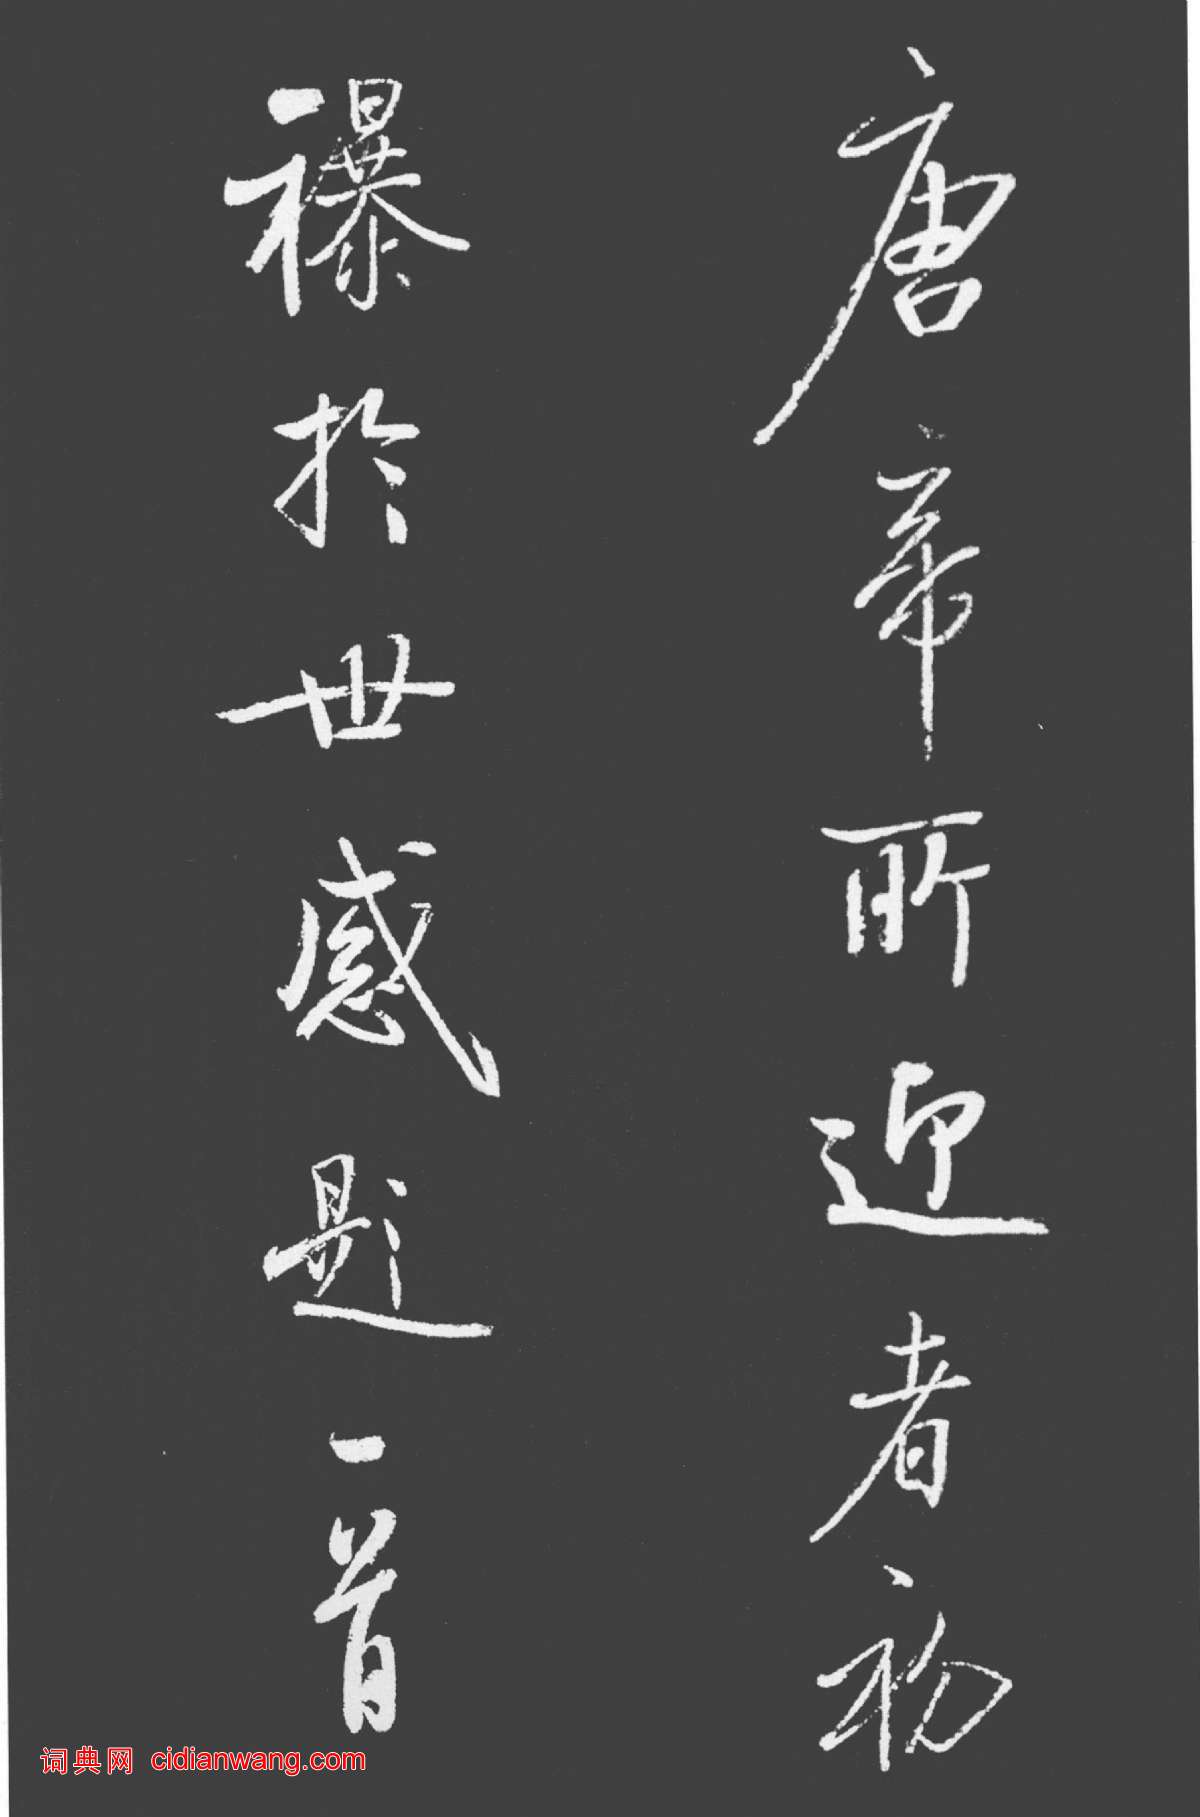 唐帝所迎者初
襮於世感題一首
词典网 cidianwang.com